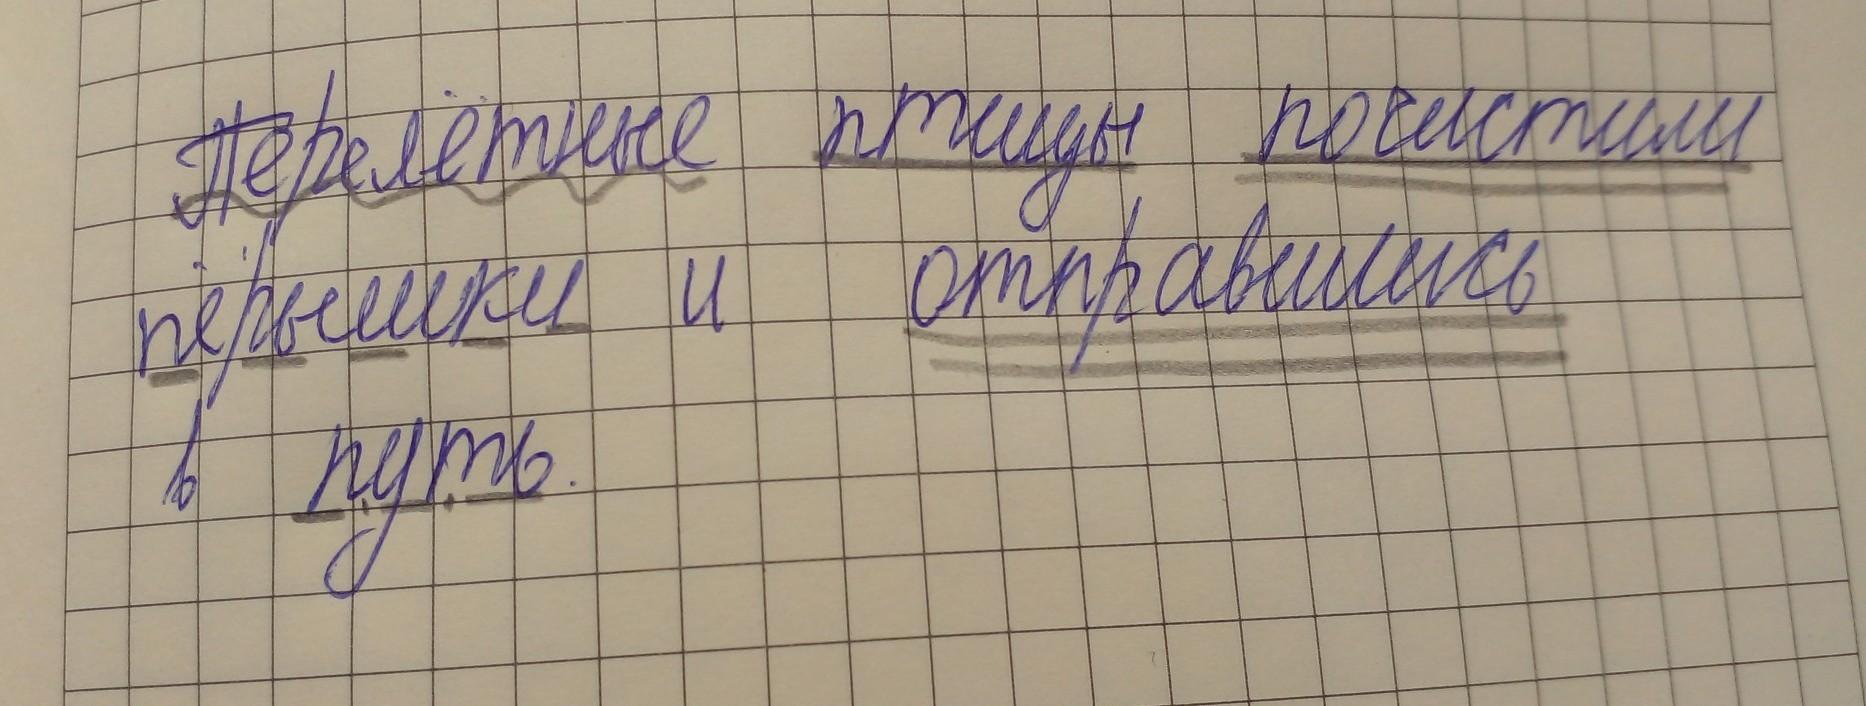 Перелётные птицы почистили
пёрышки и отправились
в путь.